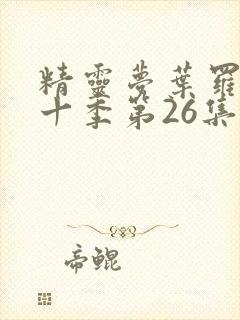 精靈夢葉羅
十季第26集
帝鯤